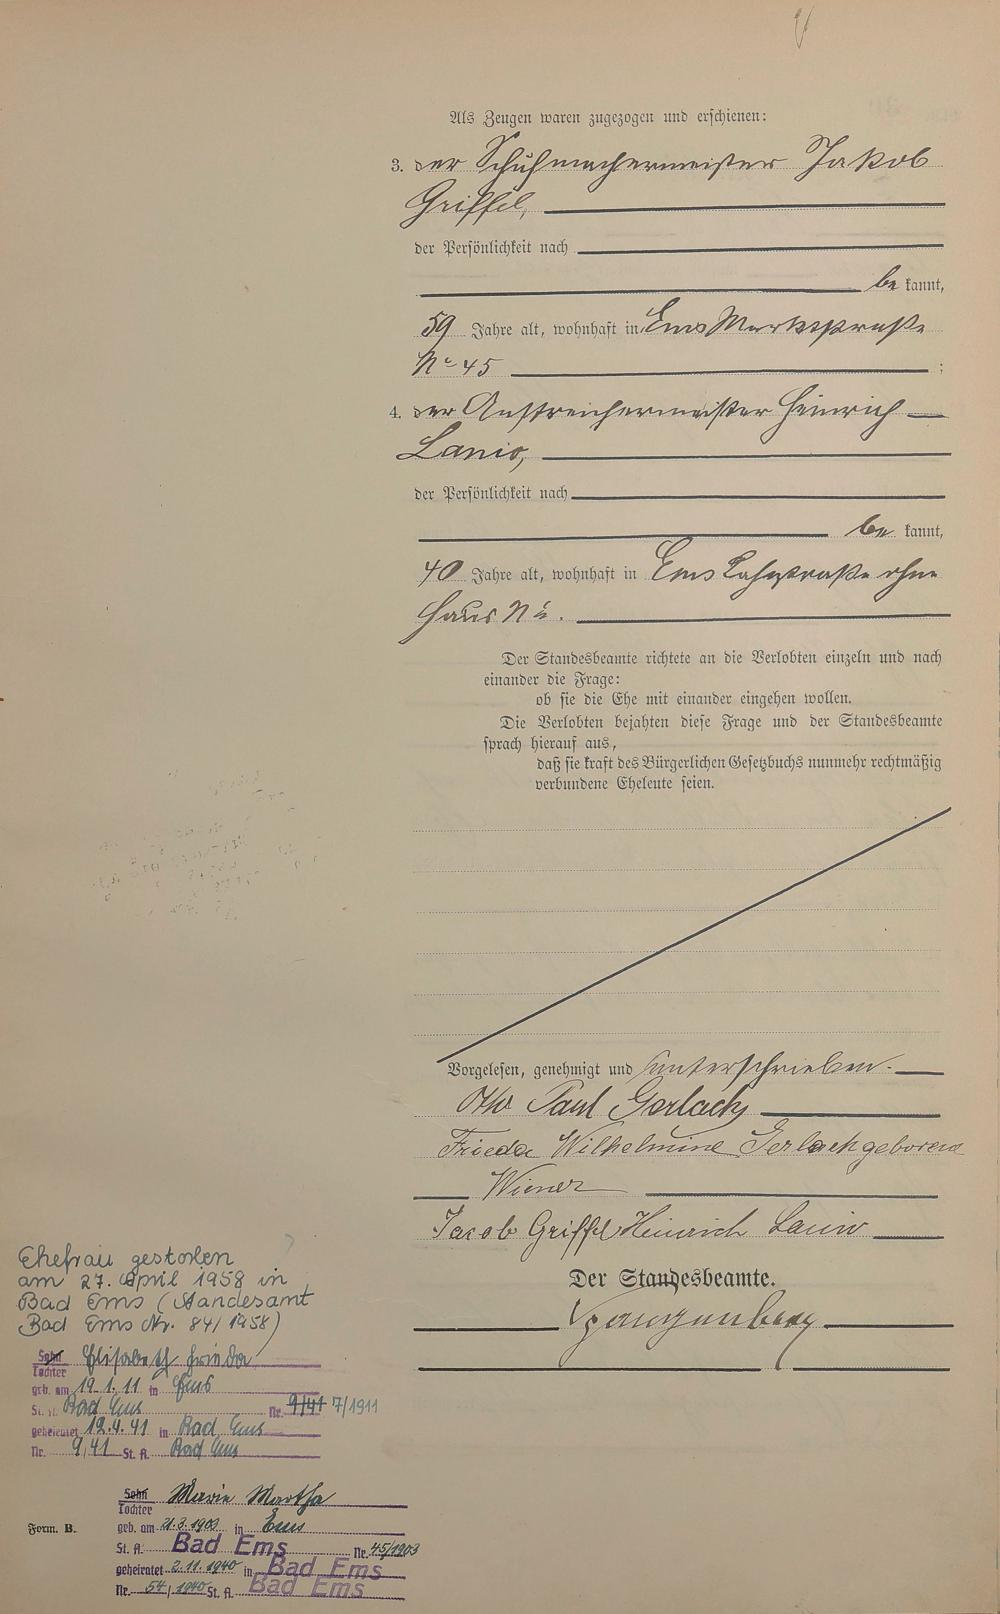 Als Zeugen waren zugezogen und erschienen:
3. der Schuhmachermeister Jakob
Griffel,
der Persönlichkeit nach
be kannt,
59 Jahre alt, wohnhaft in Ems Marktstraße
No 45 ;
4. der Anstreichermeister Heinrich
Lanio,
der Persönlichkeit nach
be kannt,
40 Jahre alt, wohnhaft in Ems Lahnstraße ohne
Haus No.
Der Standesbeamte richtete an die Verlobten einzeln und nach
einander die Frage:
ob sie die Ehe mit einander eingehen wollen.
Die Verlobten bejahten diese Frage und der Standesbeamte
sprach hierauf aus,
daß sie kraft des Bürgerlichen Gesetzbuchs nunmehr rechtmäßig
verbundene Eheleute seien.
Vorgelesen, genehmigt und unterschrieben.
Otto Paul Gerlach
Frieda Wilhelmine Gerlach geborene
Wiener
Jacob Griffel Heinrich Lanio
Der Standesbeamte.
Spangenberg
Ehefrau gestorben
am 27. April 1958 in
Bad Ems (Standesamt
Bad Ems Nr. 84/1958)
Sohn Elisabeth Frieda
Tochter
geb. am 19.1.11 in Ems
St. A. Bad Ems Nr. 9/41 7/1911
geheiratet 12.4.41 in Bad Ems
Nr. 9/41 St. A. Bad Ems
Sohn Marie Martha
Tochter
geb. am 21.3.1903 in Ems
St. A. Bad Ems Nr. 45/1903
geheiratet 2.11.1940 in Bad Ems
Nr. 54/1940 St. A. Bad Ems
Form. B.